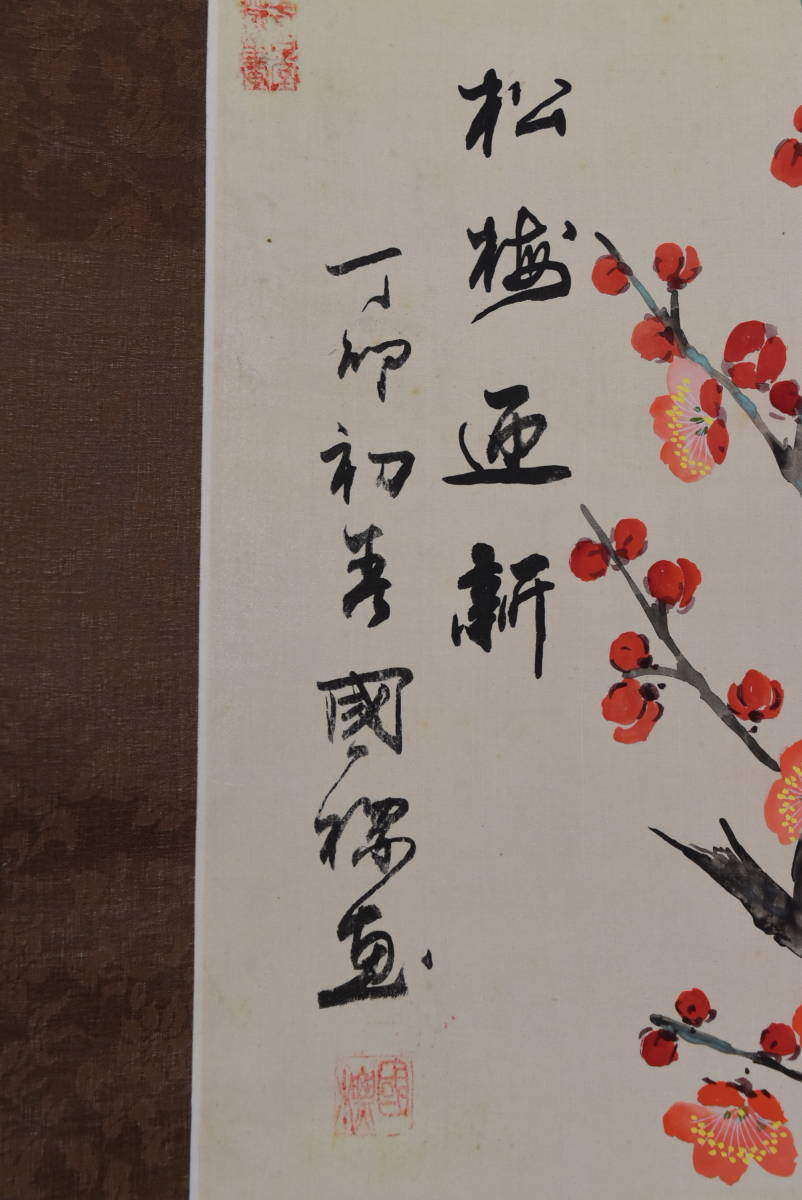 松梅迎新
丁卯初春國樑画